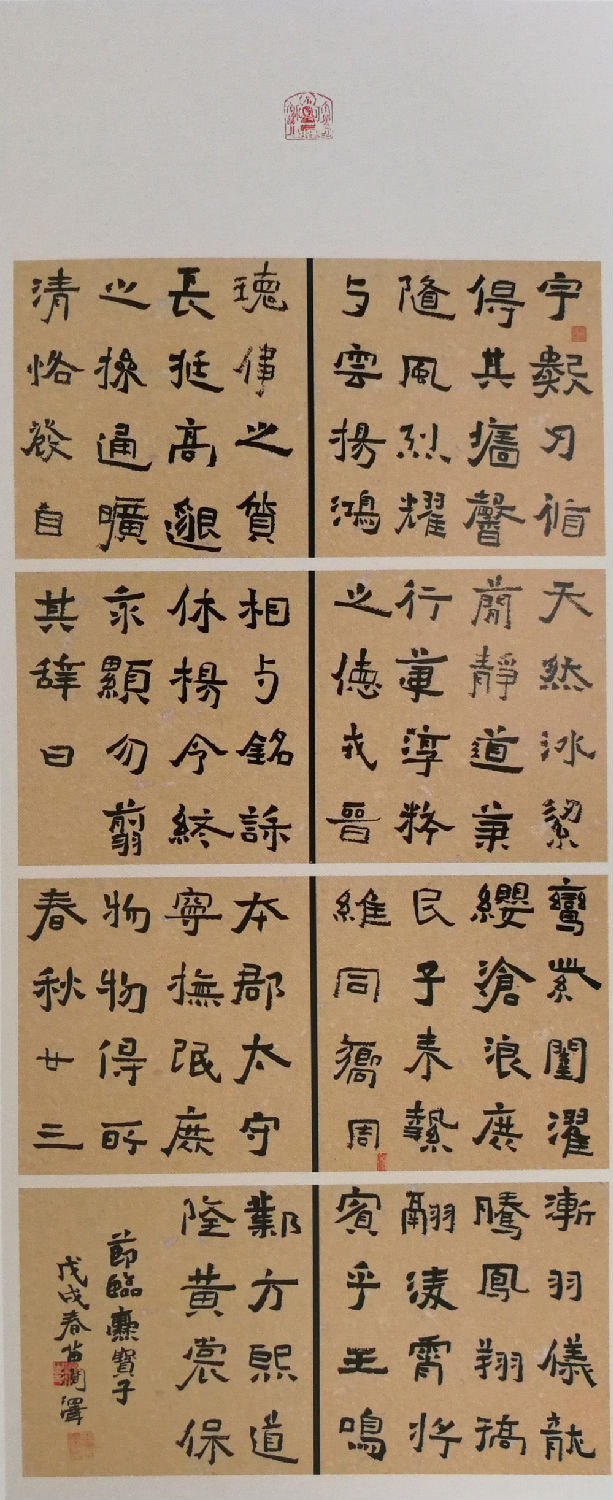 宇數刃循
得其墻馨
隨風烈耀
與雲揚鴻
瓌偉之質
長挺高邈
之操通曠
清恪發自
天然冰絜
簡靜道兼
行葦淳粹
之德戎晉
相与銘誄
休揚令終
永顯勿翦
其辞曰
鸞紫闥濯
纓滄浪庶
民子来縶
維同嚮周
本郡太守
寧撫氓庶
物物得所
春秋廿三
漸羽儀龍
騰鳳翔矯
翮淩霄將
賓乎王鳴
鄴方熙道
隆黃裳保
節臨爨寶子
戊戌春苗潤澤